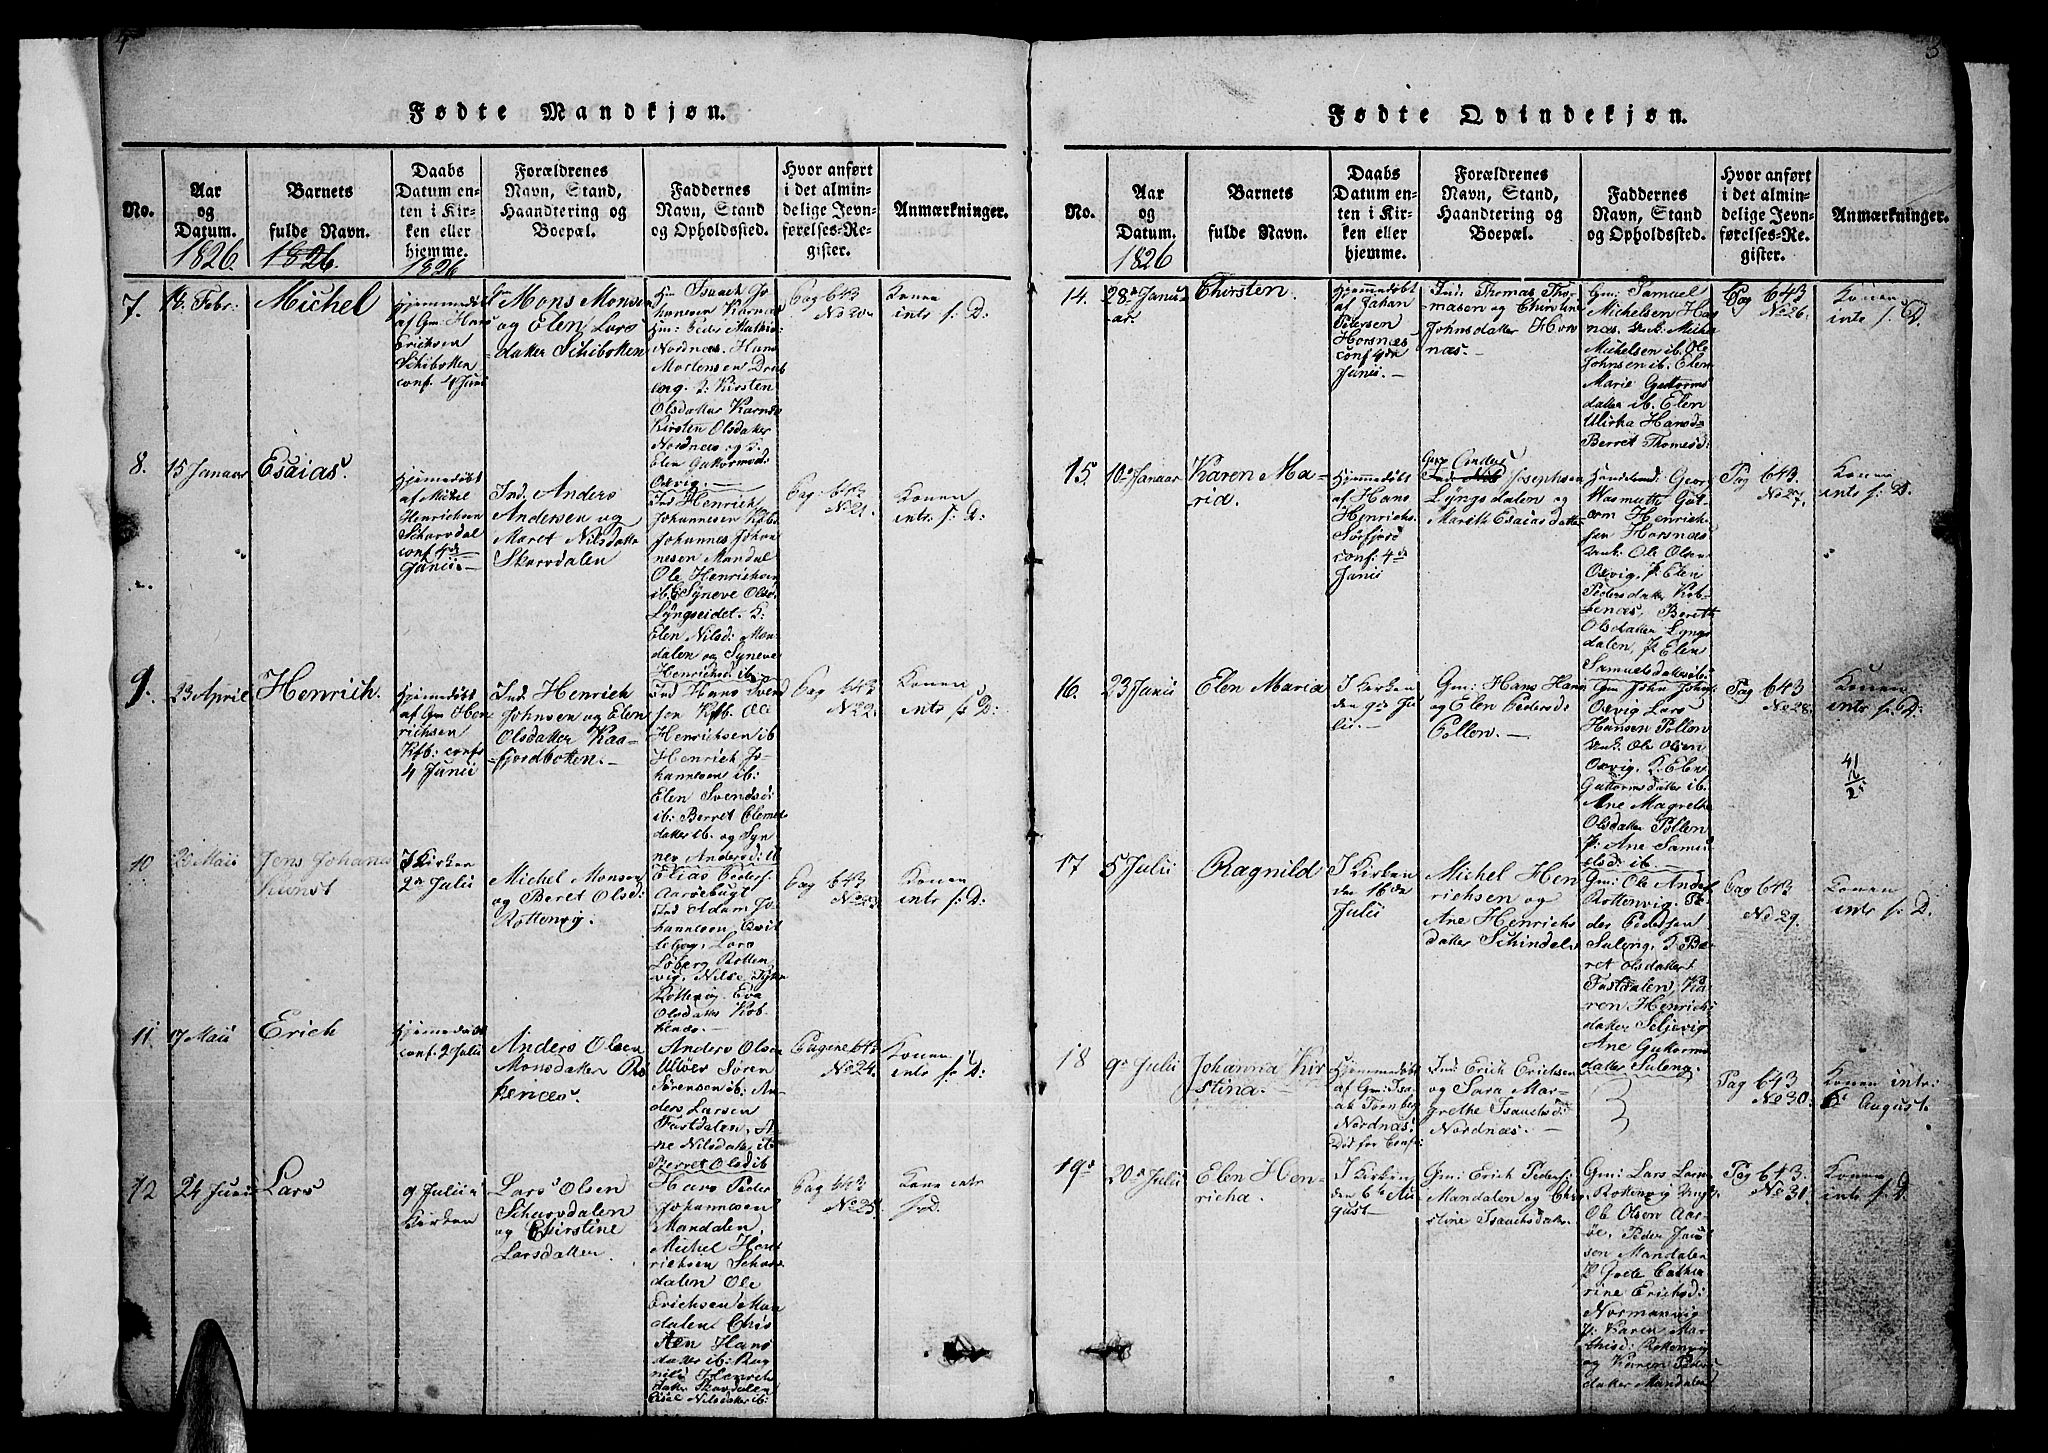 3
Fødte Mandkjøn.
No.
Aar
og
Datum.
1826.
Barnets
fulde Navn.
1826.
Daabs
Datum en-
ten i Kir-
ken eller
hjemme.
1826
Forældrenes
Navn, Stand,
Haandtering og
Boepæl.
Faddernes
Navn, Stand
og Opholdssted.
Hvor anført
i det almin-
delige Jevn-
førelses-Re-
gister.
Anmærkninger.
7.
Febr:
Michel
Hjemmedøbt
af Gm: Hans
Ericksen
Schibotten
conf. 4 Junii
Mons Mons
og Elen Lars
datter Schibotten
Isaach Jo
hannesen Karnæs
Gm: Peder Mathis
Nordnæs. Hans
Mortensen
Kirsten
Olsdatter Karnæs
Kirsten Olsdatter
Nordnæs og
Elen Guttormsd:
Oxvig.
Pag 643
No 20
Konen
intr f: D:
8.
15 Januar
Esaias.
Hjemmedøbt
af Michel
Henrichsen
Scharvdal
conf 4de
Junii.
Ind. Anders
Andersen og
Maret Nilsdatter
Skarvdalen
Ind Henrich
Johannesen Kfb.
Johannes Johan
nesen Mandal
Ole Henrichsen
ib. Syneve Olsd.
Lyngseidet. K:
Elen Nilsd: Man
dalen og Syneve
Henrichsd ib.
Pag 643
No 21.
Konen
intr f: D:
9.
23 April
Henrich.
Hjemmedøbt
af Gm Hen
richsen
Kfb: conf
4 Junii
Ind. Henrich
Johnsen og Elen
Olsdatter Kaa-
fjordbotten.
Ind Hans Svend
sen Kfb. Ole
Henrichsen ib
Henrich Jo
hannesen ib:
Elen Svendsd:
ib: Berret Clemet
datter ib. og Syn
nev Andersd: ib
Pag 643
No 22.
Konen
intr f: D:
10
Maii
Jens Johanes
I Kirken
2den Julii
Michel Monsen
og Beret Olsd:
Rottenvig.
Elias Peders.
Aarøebugt
Ind Adam Jo
hannesen
Lars
Løberg Rotten
vig. Nilse
Rottenvig Eva
Olsdatter Kob
benæs
Pag 643
No 23.
Konen
intr f: D:
11.
17 Maii
Erich
Hjemmedøbt
conf. 2 Julii
Anders Olsen
Monsdatter
Anders Olsen
Ulløen Søren
Sørensen ib: An
ders Larsen
Fastdalen, A
ne Nilsdatter ib
Berret Olsd ib
Pagene 643
No 24.
Konen
intr f: D:
12
24 Junii
Lars
9 Julii i
Kirken
Lars Olsen
Scharvdalen
og Chirstine
Larsdatter
Hans Peder
Johannesen
Mandalen,
Michel Hen
richsen Schar
dalen Ole
Erichsen Man
dalen, Chis
ten Hans
datter ib: Rag
nild Henrichs
datter Skardalen
Nilsdatter ib:
Pag 643
No 25.
Kone intr
f: D.
Fødte Qvindekjøn.
No.
Aar
og
Datum.
1826
Barnets
fulde Navn.
Daabs
Datum en-
ten i Kir-
ken eller
hjemme.
Forældrenes
Navn, Stand,
Haandtering og
Boepæl.
Faddernes
Navn, Stand
og Opholdssted.
Hvor anført
i det almin-
delige Jevn-
førelses-Re-
gister.
Anmærkninger.
14.
28 Janu
ar.
Chirsten.
Hjemmedøbt
af Johan
Petersen
Horsnæs
conf 4de
Junii.
Ind: Thomas Tho
masen og Chirstin
Johnsdatter Hors
næs.
Gm: Samuel
Michelsen Hors
næs.
Michelsen ib. Ole
Johnsen ib: Elen
Marie Guttorms
datter ib. Elen
Ulrika Hansd
Berret Thomesd:
Pag 643
No 26.
Konen
intr f: D.
15.
10 Januar
Karen Ma-
ria.
Hjemmedøbt
af Hans
Henrichs.
Sørfjord
conf: 4de
Junii
Josephsen
Lyngsdalen og
Marith Esaiasdatter
Handelsmd: Georg
Wasmuth Gut
torm Henrich
sen Horsnæs
Ole Olsen
Oxvig, Elen
Pedersdatter Kob-
benæs, Berith
Olsdatter Lyngs
dalen, Elen
Samuelsdatter ib:
Pag 643.
No 27.
Konen
intr f: D.
16.
23 Junii
Elen Maria
I Kirken
den 9de Ju
lii.
Gm: Hans Hans
og Elen Pedersd:
Pollen.
Gm John Johns
Oxvig Lars
Hansen Pollen
Ole Olsen
Oxvig. K: Elen
Guttormsdatter ib.
Ane Magrethe
Olsdatter Pollen
P: Ane Samu
elsd: ib.
Pag 643
No 28.
Konen
intr f: D.
17
5 Julii
Ragnild
I Kirken
den 16de
Julii
Michel Hen
richsen og
Ane Henrichs
datter Schindel
Gm: Ole Anders
Rottenvig. Pe
der Pedersen
Suleng, K Be
ret Olsdatter
Fastdalen Ka
ren Henrichs
datter Seljevig
Ane Guttorms
datter Suleng
Pag 643
No 29.
Konen
intr f: D.
18
9 Julii
Johanna Kir
stina.
Hjemmedøbt
af Gm: Isa
ak Tornberg
Nordnæs.
Død før Conf:
Ind: Erich Erichsen
og Sara Mar-
grethe Isaachsd:
Nordnæs.
Pag 643
No 30.
Konen intr:
6 August.
19
20 Julii
Elen Hen-
richa.
I Kirken
den 6te Au
gust
Gm: Erich Peders:
Mandalen og Chir
stine Isaachsdatter.
Gm: Lars Lars
Rottenvig
Ole Olsen Aar
øe, Peder Jacob
sen Mandalen
Cathe
rine Erichsd:
Normanvig
P: Karen Mar
thisd: Rottenvig
og Karen Peders
datter Mandalen
Pag 643.
No 31.
Konen
intr f: D.